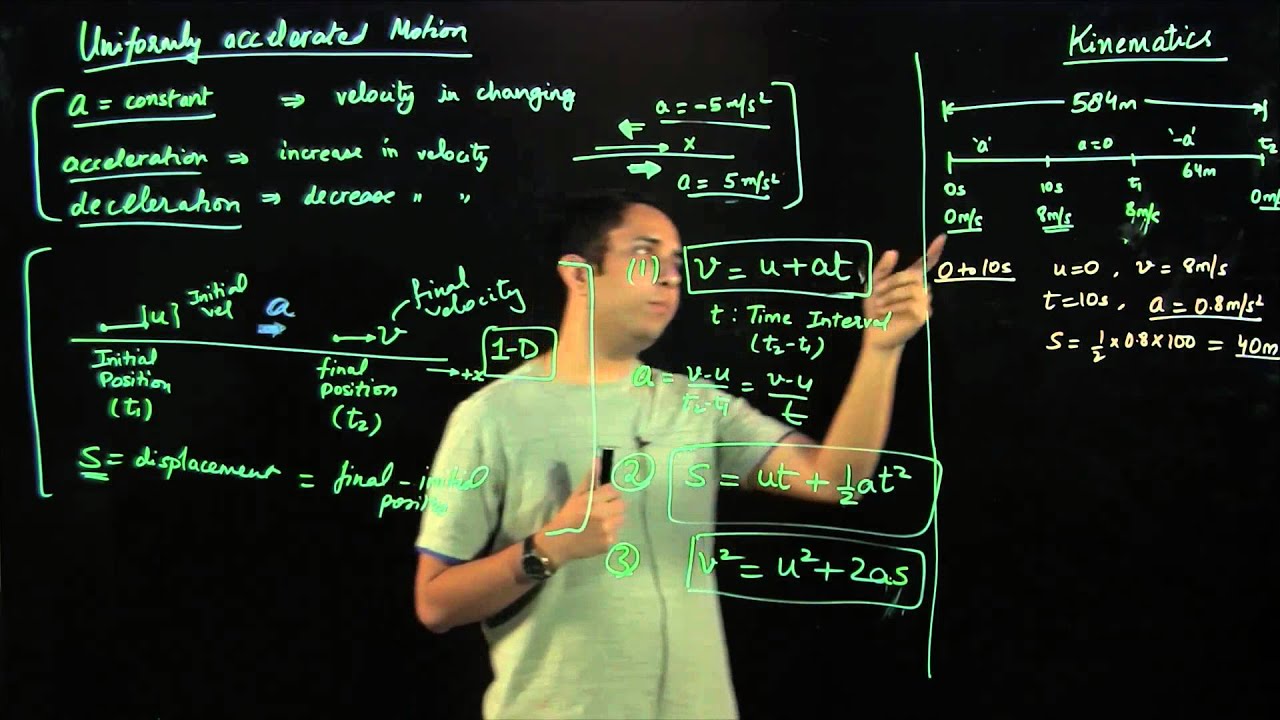 Uniformly accelerated Motion
a = constant ⇒ velocity in changing
acceleration ⇒ increase in velocity
deceleration ⇒ decrease " "
a = -5 m/s²
x
a = 5 m/s²
|u| Initial vel
a
final velocity
v
1-D
+x
Initial Position (t₁)
final position (t₂)
S = displacement = final - initial position
(1) v = u + at
t : Time Interval
(t₂-t₁)
a = v-u/t₂-t₁ = v-u/t
② S = ut + ½at²
③ v² = u² + 2as
Kinematics
584m
'a' a=0 '-a' t₂
64m
0s 10s t₁
0m/s 8m/s 8m/s 0m/s
0 to 10s u=0 , v = 8m/s
t=10s , a = 0.8m/s²
S = ½ × 0.8 × 100 = 40m